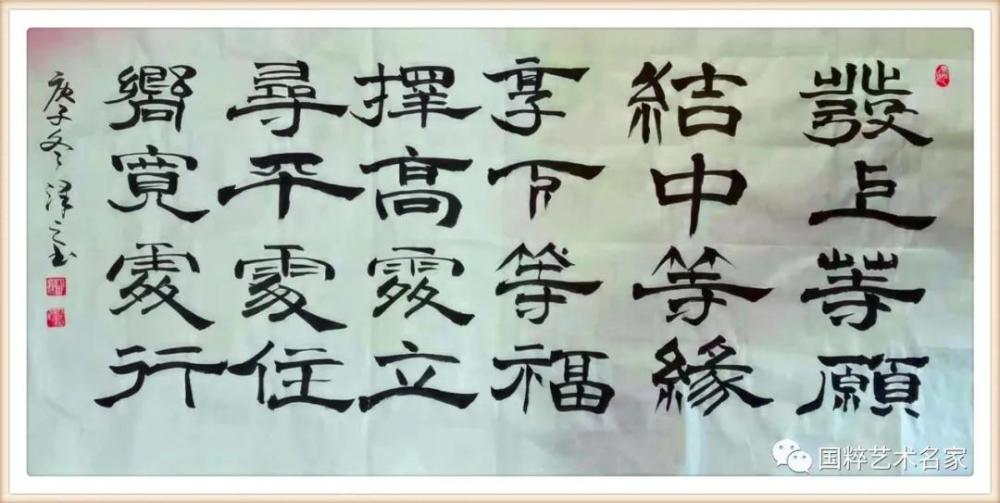 發上等願
結中等緣
享下等福
擇高處立
尋平處住
嚮寬處行
庚子冬 澤之书
国粹艺术名家